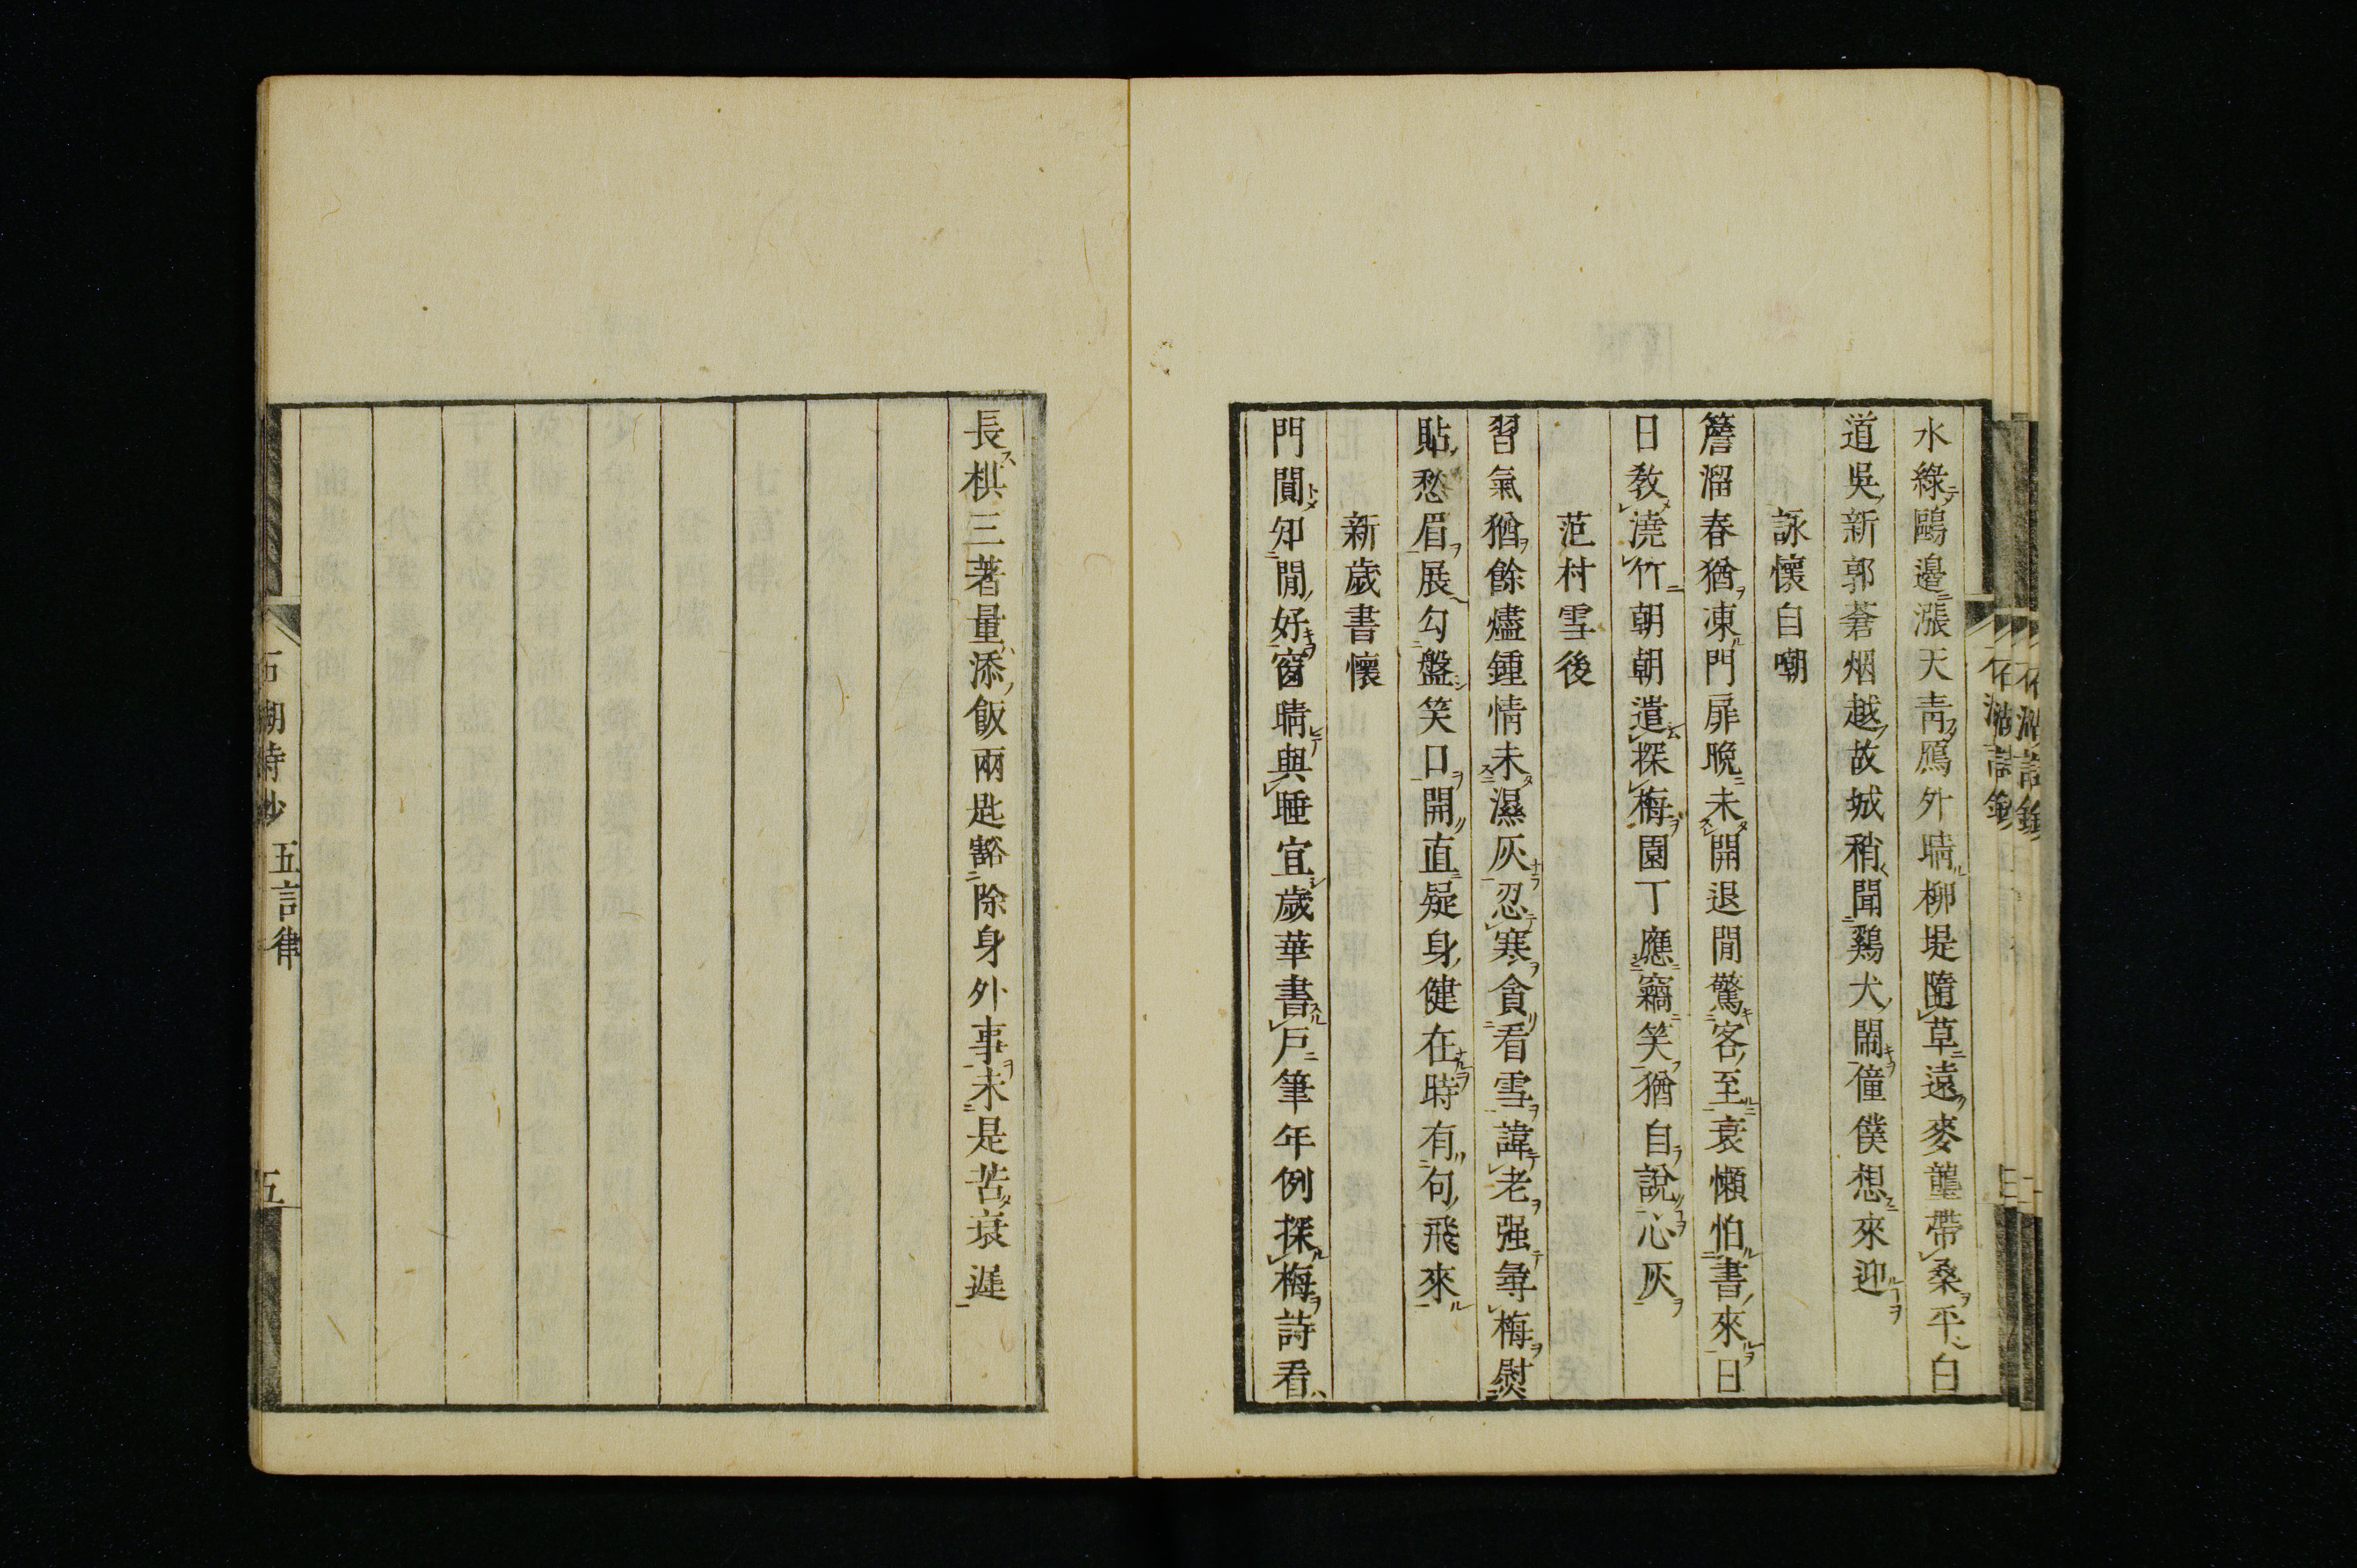 水綠鷗邊漲天青鴈外晴柳堤隨草遠麥壟帶桑平白
道吳新郭蒼烟越故城稍聞鷄犬鬧僮僕想來迎
詠懷自嘲
簷溜春猶凍門扉晩未開退閒驚客至衰懶怕書來日
日敎澆竹朝朝遣探梅園丁應竊笑猶自說心灰
范村雪後
習氣猶餘燼鍾情未濕灰忍寒貪看雪諱老强尋梅熨
貼愁眉展勾盤笑口開直疑身健在時有句飛來
新歲書懷
門閴知閒好窗晴與睡宜歲華書戸筆年例探梅詩看
長棋三著量添飯兩匙豁除身外事未是苦衰遲
石湖詩鈔 五言律 五